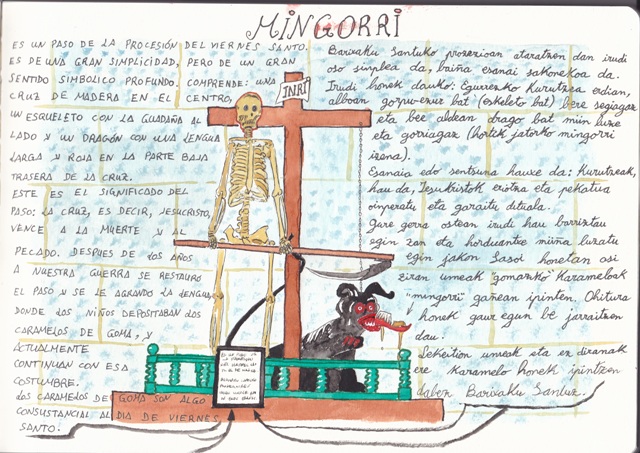 MINGORRI
ES UN PASO DE LA PROCESIÓN DEL VIERNES SANTO.
ES DE UNA GRAN SIMPLICIDAD, PERO DE UN GRAN
SENTIDO SIMBOLICO PROFUNDO. COMPRENDE: UNA
CRUZ DE MADERA EN EL CENTRO,
UN ESQUELETO CON LA GUADAÑA AL
LADO Y UN DRAGÓN CON UNA LENGUA
LARGA Y ROJA EN LA PARTE BAJA
TRASERA DE LA CRUZ.
ESTE ES EL SIGNIFICADO DEL
PASO: LA CRUZ, ES DECIR, JESUCRISTO,
VENCE A LA MUERTE Y AL
PECADO. DESPUES DE LOS AÑOS
A NUESTRA GUERRA SE RESTAURO
EL PASO Y SE LE AGRANDO LA LENGUA,
DONDE LOS NIÑOS DEPOSITABAN LOS
CARAMELOS DE GOMA, Y
ACTUALMENTE
CONTINUAN CON ESA
COSTUMBRE.
LOS CARAMELOS DE GOMA SON ALGO
CONSUSTANCIAL AL DIA DE VIERNES
SANTO.
INRI
Barixaku Santuko prozesioan ataratzen dan irudi
oso sinplea da, baiña esanai sakonekoa da.
Irudi honek dauko: Egurrezko Kurutzea erdian,
alboan gorpu-ezur bat (eskeleto bat) bere segiagaz
eta bee aldean drago bat miin luze
eta gorriagaz (hortek jatorko mingorri
izena).
Esanaia edo sentsuna hauxe da: Kurutzeak,
hau da, Jesukristok eriotza eta pekatua
oinperatu eta garaitu dituala.
Gure gerra ostean irudi hau barriztau
egin zan eta horduantxe miiña luzatu
egin jakon. Sasoi honetan asi
ziran umeak "gomazko" Karameloak
mingorri ganean ipinten. Ohitura
honek gaur egun be jarraitzen
dau.
Lekeition umeak eta ez diranak
ere Karamelo honek ipintzen
daben Barixaku Santuz.